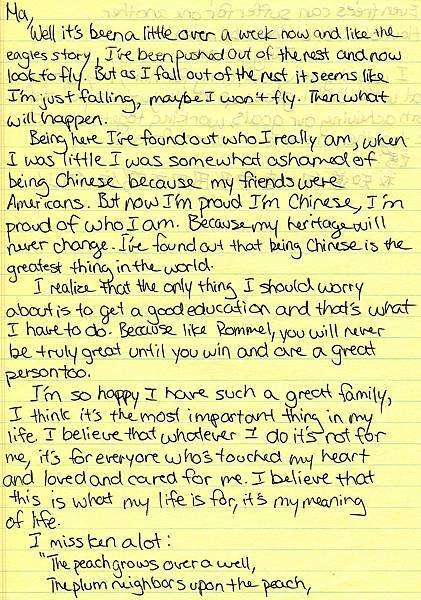 Ma,
Well it's been a little over a week now and like the
eagles story, I've been pushed out of the nest and now
look to fly. But as I fall out of the nest it seems like
I'm just falling, maybe I won't fly. Then what
will happen.
Being here I've found out who I really am, when
I was little I was somewhat ashamed of
being Chinese because my friends were
Americans. But now I'm proud I'm Chinese, I'm
proud of who I am. Because my heritage will
never change. I've found out that being Chinese is the
greatest thing in the world.
I realize that the only thing I should worry
about is to get a good education and that's what
I have to do. Because like Rommel, you will never
be truly great until you win and are a great
person too.
I'm so happy I have such a great family,
I think it's the most important thing in my
life. I believe that whatever I do it's not for
me, it's for everyone who's touched my heart
and loved and cared for me. I believe that
this is what my life is for, it's my meaning
of life.
I miss Ken a lot:
"The peach grows over a well,
The plum neighbors upon the peach,